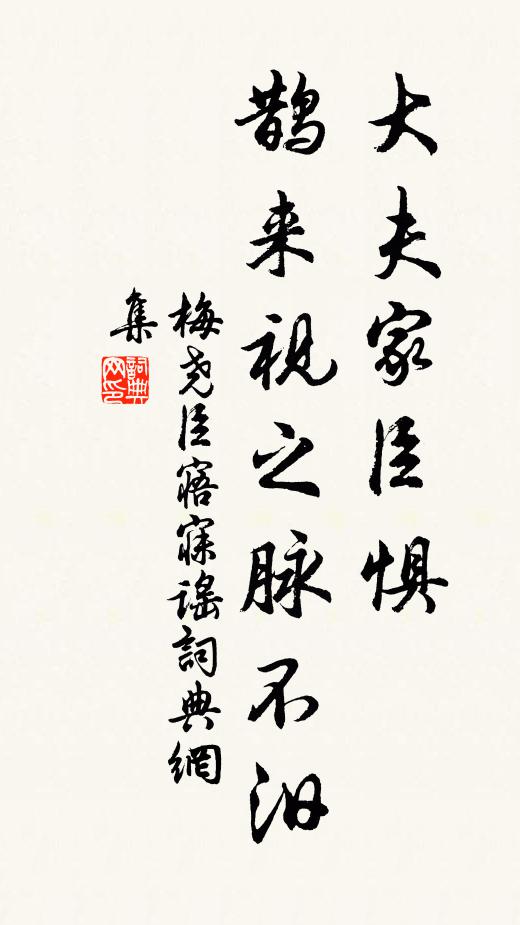 大夫家臣惧
鹊来视之脉不汩
梅尧臣寤寐谣詞典網
集
詞典
网印